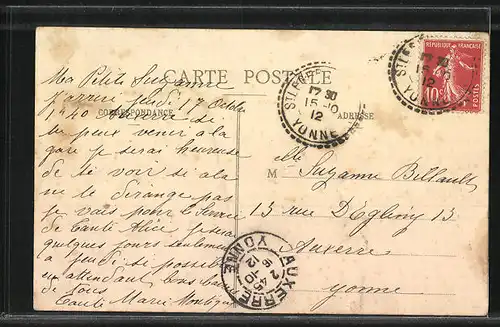 CARTE POSTALE
CORRESPONDANCE
ADRESSE
Ma Petite Suzanne
j'arrive jeudi 17 Octobre
1h40 si
tu peux venir a la
gare je serai heureuse
de te voir si cela
ne te dérange pas
je vais pour le Service
de Tante Alice
quelques jours seulement
a jeudi si possible
en attendant bons baisers
de tous
Tante Marie
M lle Suzanne Billault
13 rue D'Egleny 13
Auxerre
Yonne
17 30
15-10
12
YONNE
REPUBLIQUE FRANÇAISE
10c
POSTES
17 30
15-10
12
YONNE
AUXERRE
2 45
16-10
12
YONNE